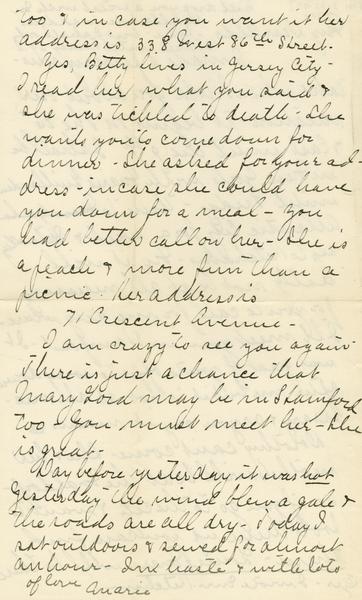 too & in case you want it her
address is 338 West 86th Street.
Yes, Betty lives in Jersey City-
I read her what you said &
she was tickled to death - She
wants you to come down for
dinner - She asked for your ad-
dress - in case she could have
you down for a meal - You
had better call on her - She is
a peach & more fun than a
picnic. her address is
71 Crescent Avenue -
I am crazy to see you again.
There is just a chance that
Mary Lord may be in Stamford
too - You must meet her - She
is great -
Day before yesterday it was hot
yesterday the wind blew a gale &
the roads are all dry - Today I
sat outdoors & sewed for almost
an hour - In haste & with lots
of love Marie